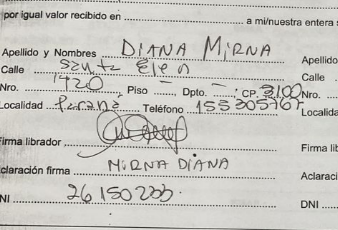 por igual valor recibido en ........ a mi/nuestra entera s
Apellido y Nombres DIANA MIRNA Apellido
Calle Santa Elena Calle
Nro. 1420 Piso ........ Dpto. ........ CP. 3100 Nro.
Localidad Parana Teléfono 155305767 Localida
Firma librador Firma lib
claración firma MIRNA DIANA Aclaraci
NI 26150233 DNI